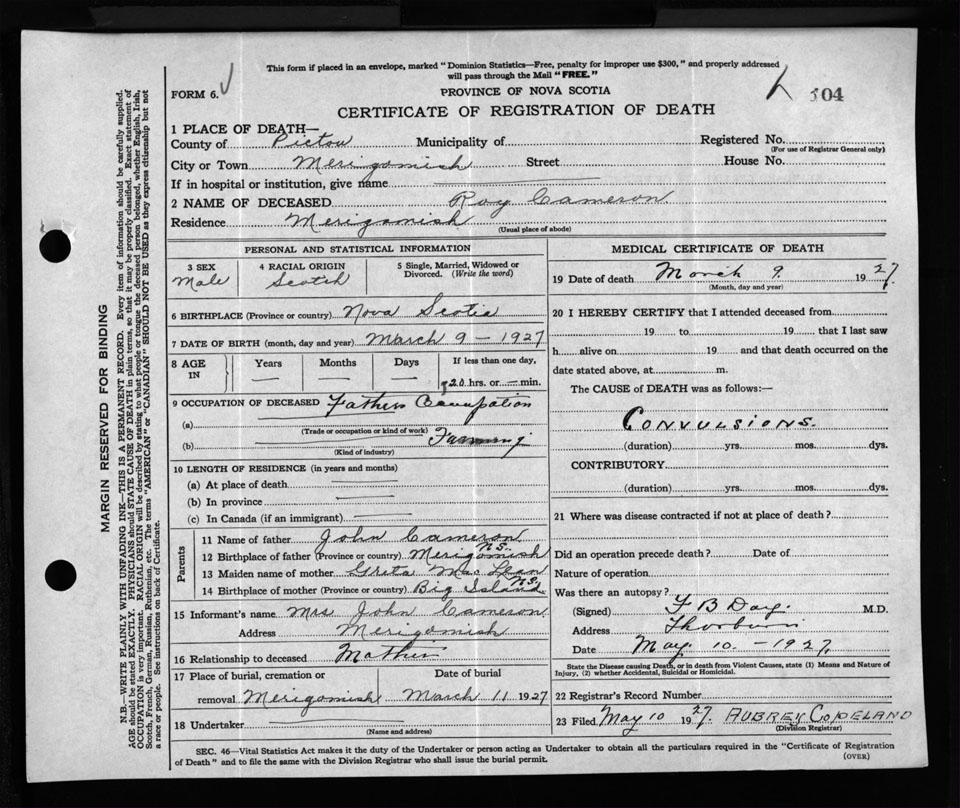 This form if placed in an envelope, marked "Dominion Statistics—Free, penalty for improper use $300," and properly addressed
will pass through the Mail "FREE."
FORM 6.
PROVINCE OF NOVA SCOTIA
304
CERTIFICATE OF REGISTRATION OF DEATH
1 PLACE OF DEATH—
County of Pictou Municipality of Registered No.
(For use of Registrar General only)
City or Town Merigomish Street House No.
If in hospital or institution, give name
2 NAME OF DECEASED Roy Cameron
Residence Merigomish
(Usual place of abode)
PERSONAL AND STATISTICAL INFORMATION
3 SEX 4 RACIAL ORIGIN 5 Single, Married, Widowed or
Divorced. (Write the word)
Male Scotch
6 BIRTHPLACE (Province or country) Nova Scotia
7 DATE OF BIRTH (month, day and year) March 9 – 1927
8 AGE IN Years Months Days If less than one day,
20 hrs. or — min.
9 OCCUPATION OF DECEASED Fathers Occupation
(a)
(Trade or occupation or kind of work)
(b) Farming
(Kind of industry)
10 LENGTH OF RESIDENCE (in years and months)
(a) At place of death
(b) In province
(c) In Canada (if an immigrant)
Parents
11 Name of father John Cameron
12 Birthplace of father (Province or country) Merigomish N.S.
13 Maiden name of mother Greta MacLean
14 Birthplace of mother (Province or country) Big Island N.S.
15 Informant's name Mrs John Cameron
Address Merigomish
16 Relationship to deceased Mother
17 Place of burial, cremation or Date of burial
removal Merigomish March 11 1927
18 Undertaker
(Name and address)
MEDICAL CERTIFICATE OF DEATH
19 Date of death March 9. 1927.
(Month, day and year)
20 I HEREBY CERTIFY that I attended deceased from
19 to 19 that I last saw
h alive on 19 and that death occurred on the
date stated above, at m.
The CAUSE of DEATH was as follows:—
CONVULSIONS.
(duration) yrs. mos. dys.
CONTRIBUTORY
(duration) yrs. mos. dys.
21 Where was disease contracted if not at place of death?
Did an operation precede death? Date of
Nature of operation
Was there an autopsy?
(Signed) F B Day. M.D.
Address Thorburn
Date May. 10. – 1927.
State the Disease causing Death, or in death from Violent Causes, state (1) Means and Nature of
Injury, (2) whether Accidental, Suicidal or Homicidal.
22 Registrar's Record Number
23 Filed May 10 1927. AUBREY COPELAND
(Division Registrar)
SEC. 46—Vital Statistics Act makes it the duty of the Undertaker or person acting as Undertaker to obtain all the particulars required in the "Certificate of Registration
of Death" and to file the same with the Division Registrar who shall issue the burial permit.
(OVER)
MARGIN RESERVED FOR BINDING
N.B.—WRITE PLAINLY WITH UNFADING INK—THIS IS A PERMANENT RECORD. Every item of information should be carefully supplied.
AGE should be stated EXACTLY. PHYSICIANS should STATE CAUSE OF DEATH in plain terms, so that it may be properly classified. Exact statement of
OCCUPATION is very important. RACIAL ORIGIN will be described by stating to what people or tongue the deceased person belonged, whether English, Irish,
Scotch, French, German, Russian, Ruthenian, etc. The terms "AMERICAN" or "CANADIAN" SHOULD NOT BE USED as they express citizenship but not
a race or people. See instructions on back of Certificate.